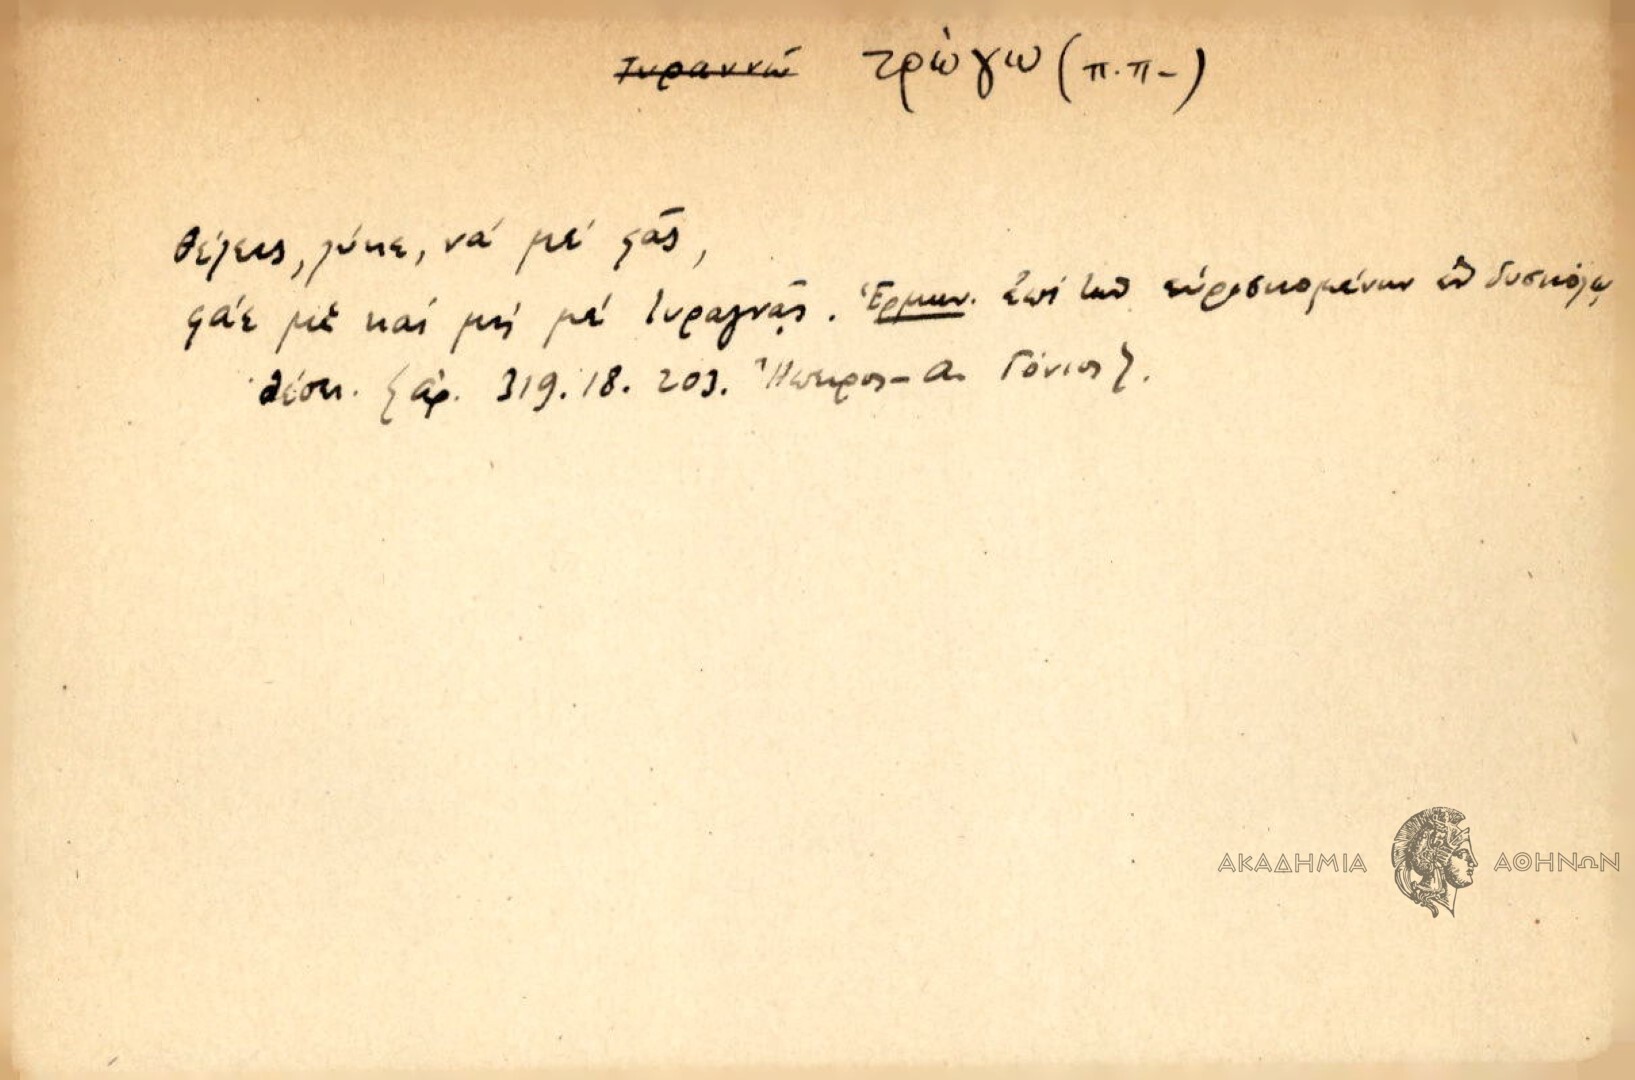 τυραννῶ τρώγω (π.π-)
θέλεις, λύκε, νά μέ φᾶς,
φάε μὲ καί μή μέ τυραγνᾷς. Ἑρμην. Ἐπί τῶν εὑρισκομένων ἐν δυσκόλῳ
θέσει. {ἀρ. 319. 18. 203. Ἤπειρος - Α. Γόνιος}.
ΑΚΑΔΗΜΙΑ ΑΘΗΝΩΝ